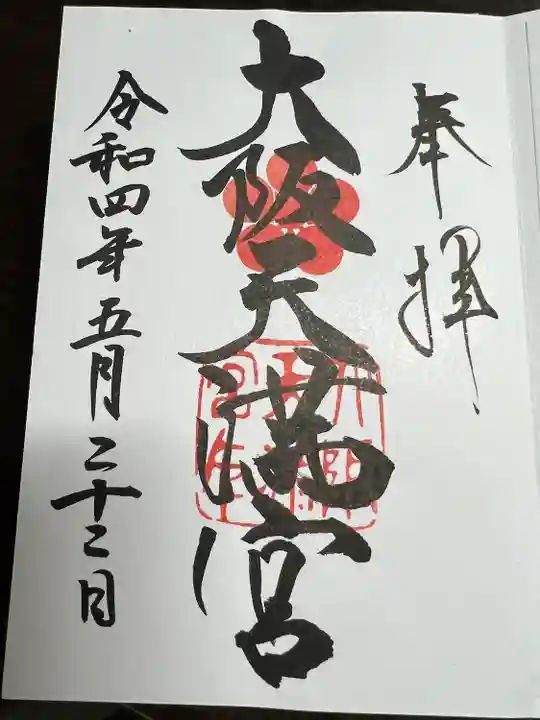 奉拝
大阪天満宮
令和四年五月二十二日